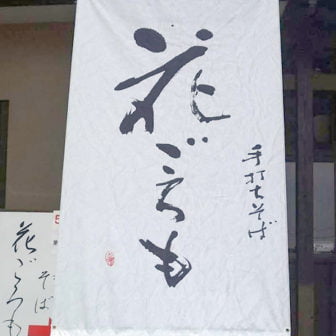 手打ちそば
花ごろも
花ごろも
そば